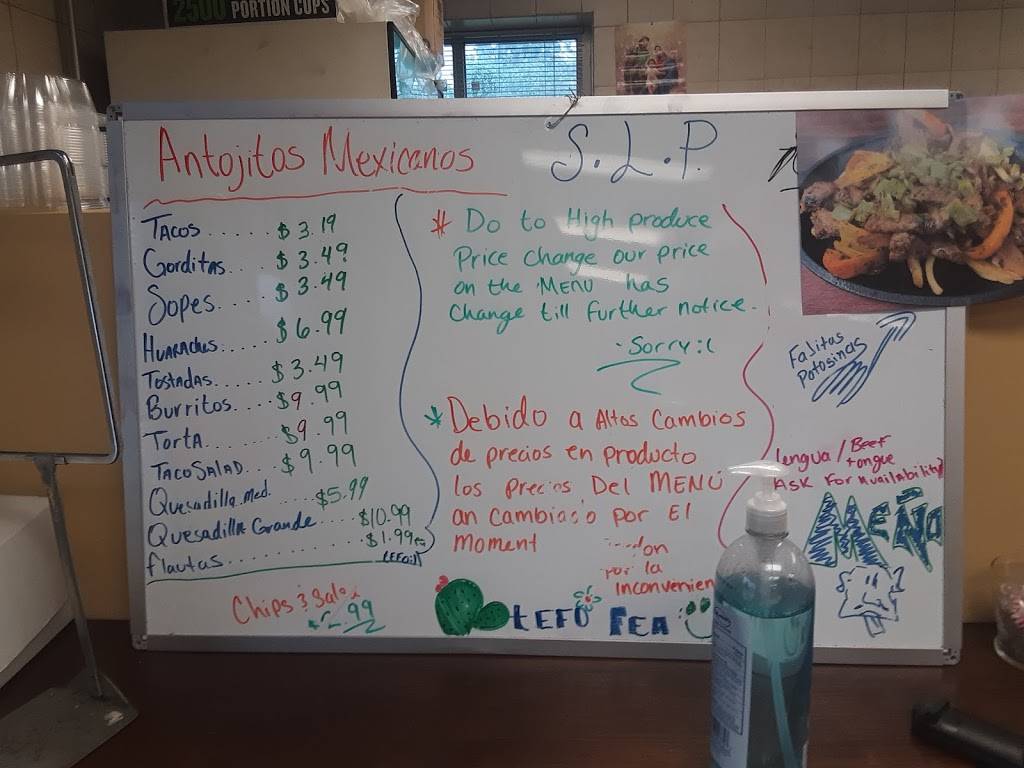 2500 PORTION CUPS
Antojitos Mexicanos
S.L.P.
Tacos ...... $3.19
Gorditas.. $3.49
Sopes. $3.49
Huaraches..... $6.99
Tostadas..... $3.49
Burritos.... $9.99
Torta ....... $9.99
Taco Salad... $9.99
Quesadilla Med. .... $5.99
Quesadilla Grande .... $10.99
flautas.......... $1.99
Chips & Salsa
$2.99
* Do to High produce
Price Change our price
on the MENU has
Change till further notice.
- Sorry :(
* Debido a Altos Cambios
de precios en producto
los precios Del MENU
an Cambiado por El
Moment
por la
Inconvenien
FEA
Fajitas
Potosinas
Lengua / Beef
tongue
Ask For Availability